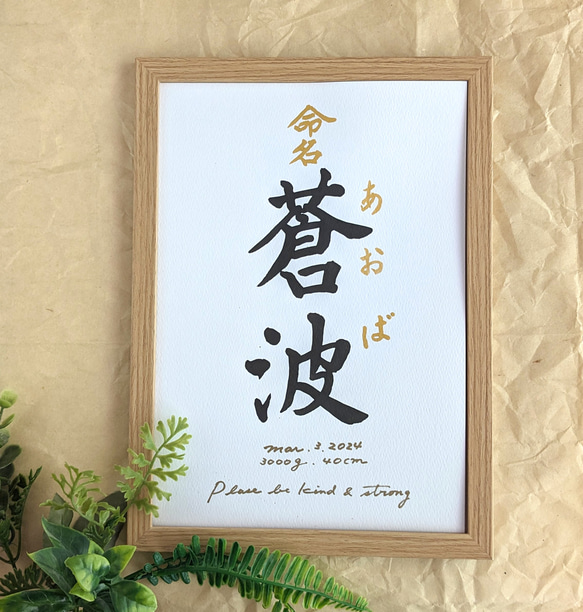 命名
蒼波
あおば
mar. 3. 2024
3000g. 40cm
Please be kind & strong